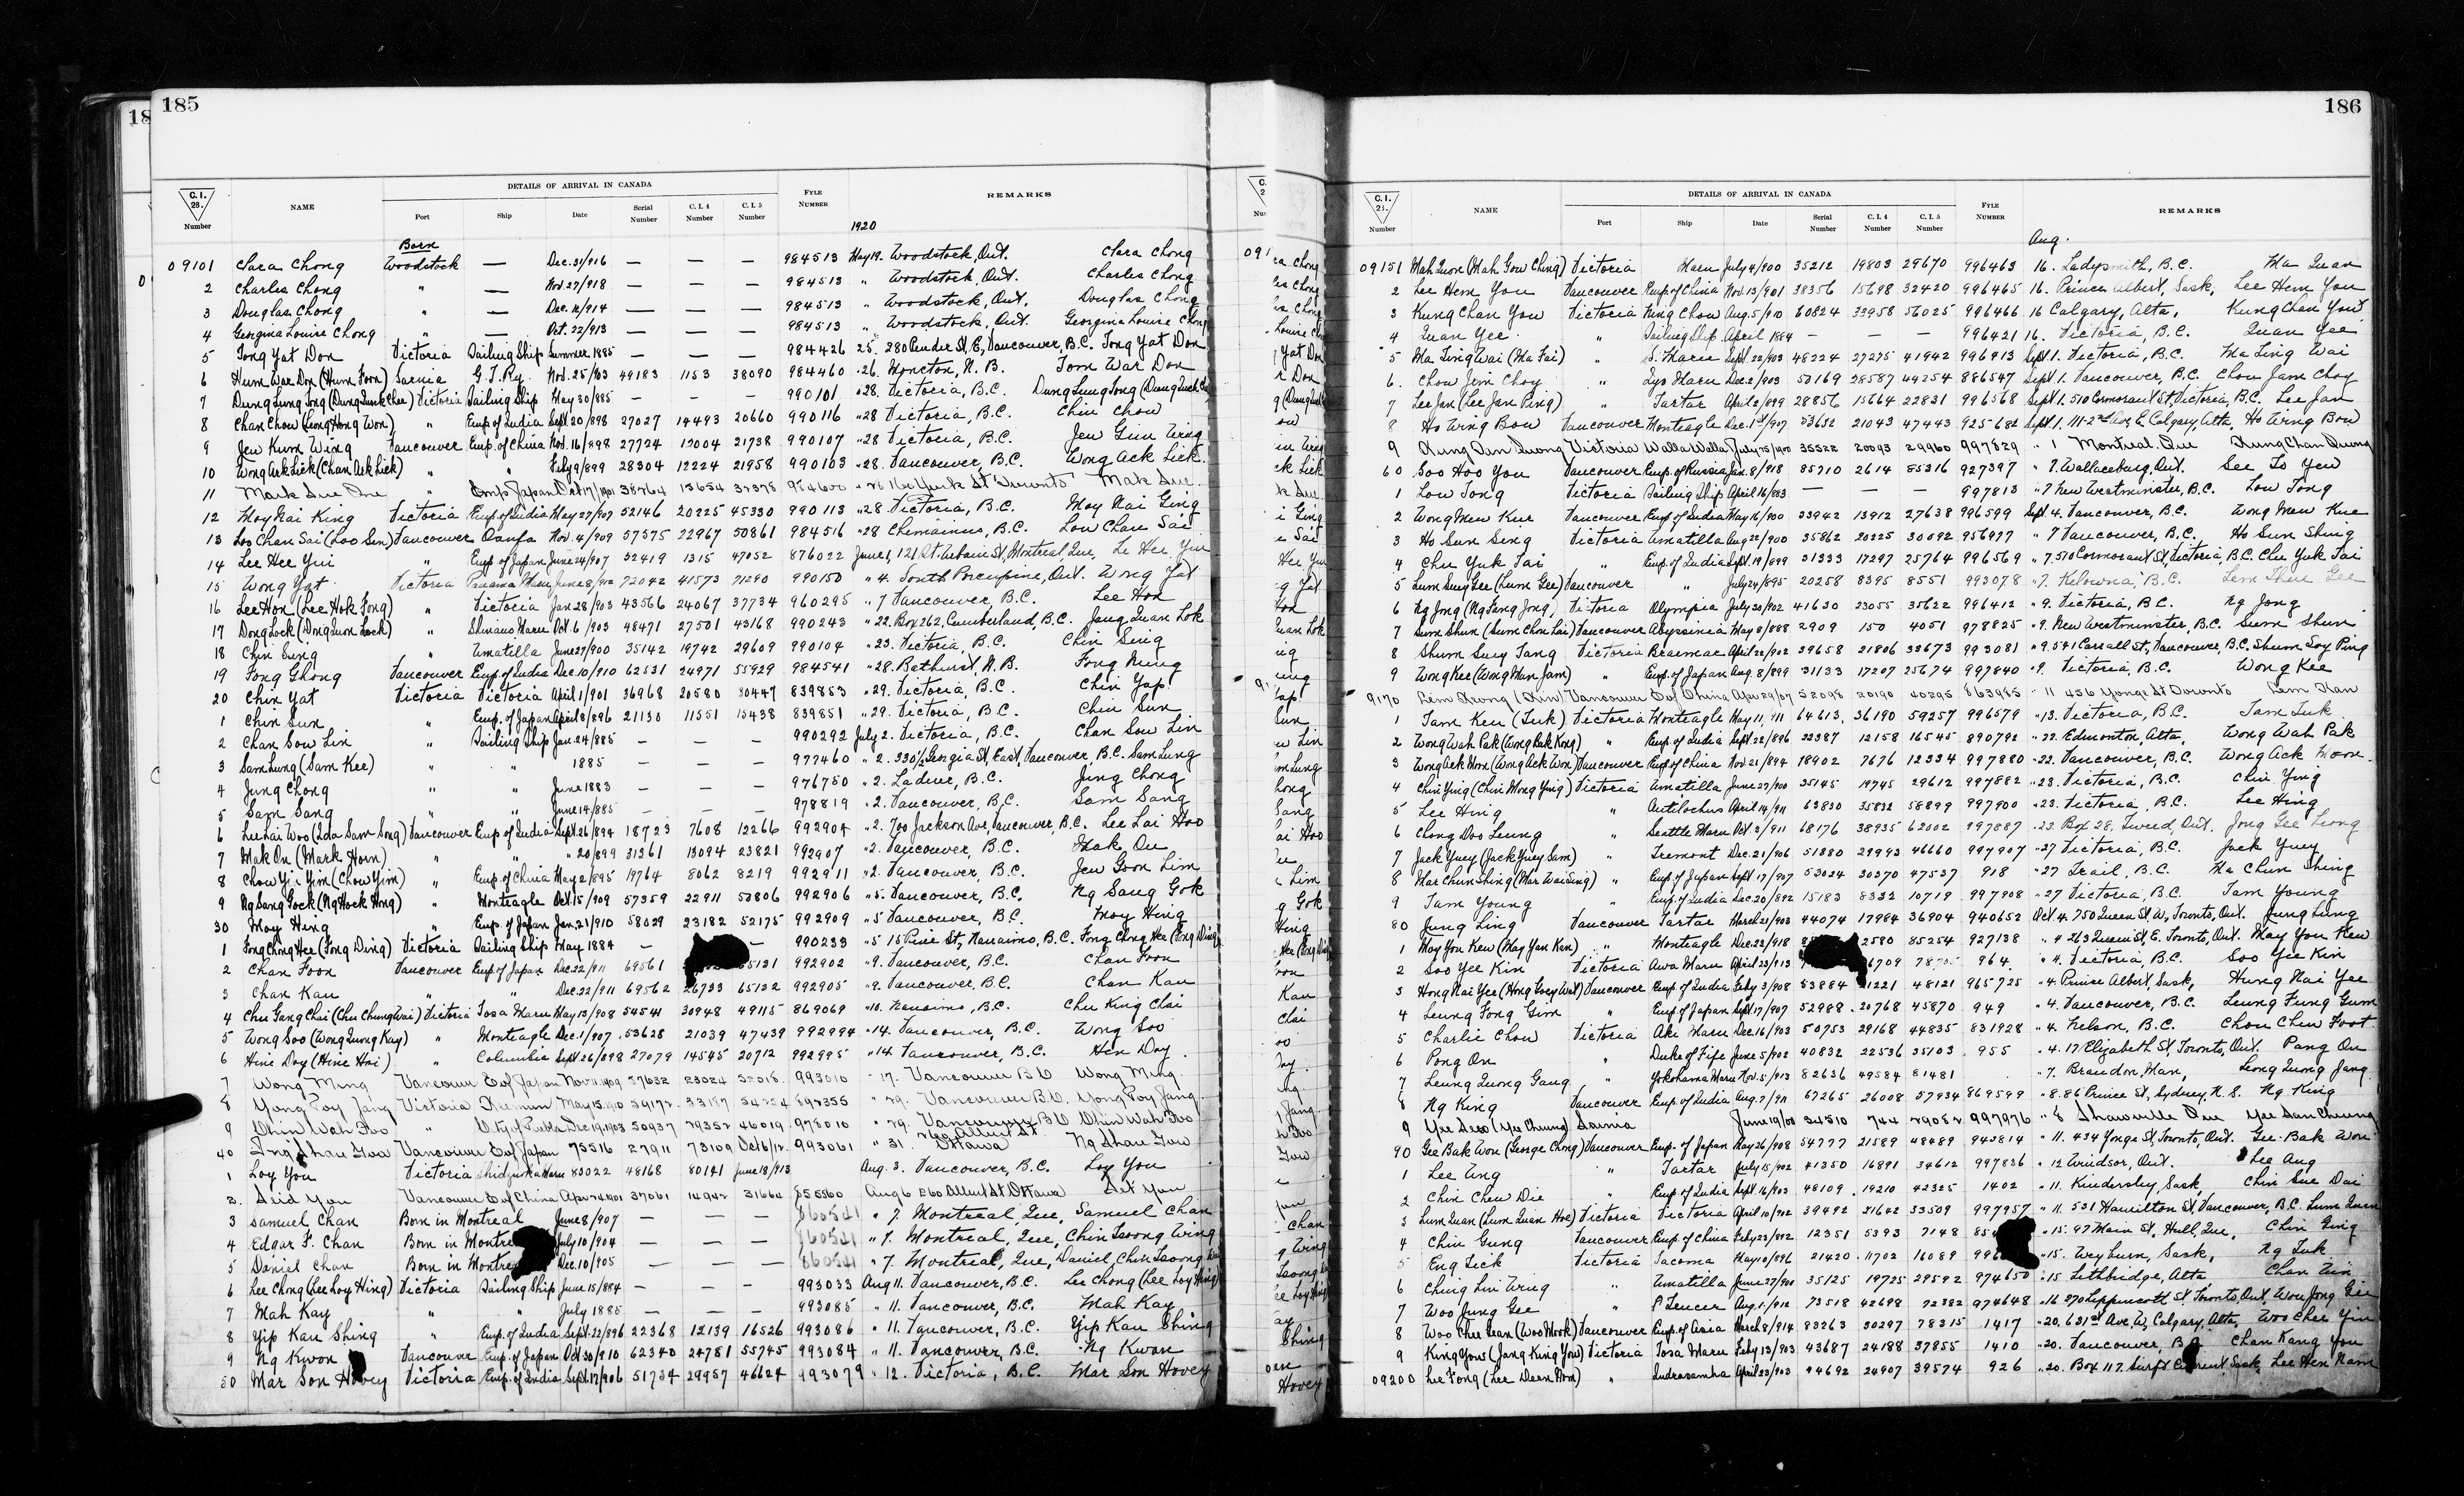 185
C.I. 28. Number NAME DETAILS OF ARRIVAL IN CANADA Port Ship Date Serial Number C.I.4 Number C.I.5 Number FYLE NUMBER REMARKS
1920
Born
09101 Clara Chong Woodstock — Dec. 31/916 — — — 984513 May 19. Woodstock, Ont. Clara Chong
2 Charles Chong " — Nov. 27/918 — — — 984513 " Woodstock, Ont. Charles Chong
3 Douglas Chong " — Dec. 12/914 — — — 984513 " Woodstock, Ont. Douglas Chong
4 Georgina Louise Chong " — Oct. 22/913 — — — 984513 " Woodstock, Ont. Georgina Louise Chong
5 Tong Yat Don Victoria Sailing Ship Summer 1885 — — — 984426 25. 280 Pender St, E, Vancouver, B.C. Tong Yat Don
6 Hum War Don (Hum Foon) Sarnia G.T.Ry. Nov. 25/903 49183 1153 38090 984460 " 26. Moncton, N.B. Tom War Don
7 Victoria Sailing Ship May 30/885 — — — 990101 " 28. Victoria, B.C. Dung Lung Tong
8 Chan Chow (Leong Hong Won) " Emp. of India Sept. 20/898 27027 14493 20660 990116 " 28 Victoria, B.C. Chin Chow
9 Jew Kum Wing Vancouver Emp. of China Nov. 16/898 27724 12004 21738 990107 " 28 Victoria, B.C. Jew Gim Wing
10 Wong Ack Lick (Chan Ack Lick) " " Feby 9/899 28304 12224 21958 990103 " 28. Vancouver, B.C. Wong Ack Lick
11 Mark Sue " Emp Japan Oct 17/1901 " 28 160 York St Toronto Mak Sue
12 Moy Nai King Victoria Emp. of India May 27/907 52146 20225 45330 990113 " 28. Victoria, B.C. Moy Nai Ging
13 Loo Chan Sai (Loo Sen) Vancouver Oanfa Nov. 4/909 57575 22967 50861 984516 " 28 Chemainus, B.C. Low Chan Sai
14 Lee Hee Yui " Emp of Japan June 24/907 52419 1315 47052 876022 June 1, 121 St. Urbain St, Montreal, Que. Le Hee Yui
15 Wong Yat Victoria Panama Maru June 8/912 72042 41573 71290 990150 " 4. South Porcupine, Ont. Wong Yat
16 Lee Hon (Lee Hok Fong) " Victoria Jan 28/903 43566 24067 37734 960295 " 7 Vancouver, B.C. Lee Hon
17 Dong Lock (Dong Quon Lock) " Shinano Maru Oct. 6/903 48471 27501 43168 990243 " 22. Box 262, Cumberland, B.C. Jang Quan Lok
18 Chin Sing " Umatilla June 27/900 35142 19742 29609 990104 " 23. Victoria, B.C. Chin Sing
19 Fong Ghong Vancouver Emp. of India Dec. 10/910 62531 24971 55929 984541 " 28. Bathurst, N.B. Fong Ming
20 Chin Yat Victoria Victoria April 1/901 36968 20580 30447 839853 " 29. Victoria, B.C. Chin Yap
1 Chin Sun " Emp. of Japan April 8/896 21130 11551 15438 839851 " 29. Victoria, B.C. Chin Sun
2 Chan Sow Lin " Sailing Ship Jan. 24/885 — — — 990292 July 2. Victoria, B.C. Chan Sow Lin
3 Sam Lung (Sam Kee) " " 1885 — — — 977460 " 2. 330½ Georgia St, East, Vancouver, B.C. Sam Lung
4 Jung Chong " " June 1883 — — — 976750 " 2. Ladner, B.C. Jing Chong
5 Sam Sang " " June 14/885 — — — 978819 " 2. Vancouver, B.C. Sam Sang
6 Lee Lai Woo Vancouver Emp of India Sept. 26/894 18723 7608 12266 992904 " 2. 700 Jackson Ave, Vancouver, B.C. Lee Lai Hoo
7 Mak On (Mark Horn) " " " 20/899 31361 13094 23821 992907 " 2. Vancouver, B.C. Mak On
8 Chow Yin Yim (Chow Yim) " Emp. of China May 2/895 19764 8062 8219 992911 " 2. Vancouver, B.C. Jew Goon Lim
9 Ng Sang Gock (Ng Hock Hong) " Monteagle Oct. 15/909 57359 22911 50806 992906 " 5. Vancouver, B.C. Ng Sang Gok
30 Moy Hing " Emp. of Japan Jan. 21/910 58029 23182 52175 992909 " 5 Vancouver, B.C. Moy Hing
1 Fong Chong Hee (Fong Ding) Victoria Sailing Ship May 1884 — — 990233 " 5 15 Pine St, Nanaimo, B.C. Fong Chong Hee (Fong Ding)
2 Chan Foon Vancouver Emp. of Japan Dec. 22/911 69561 65131 992902 " 9. Vancouver, B.C. Chan Foon
3 Chan Kau " " Dec. 22/911 69562 26733 65132 992905 " 9. Vancouver, B.C. Chan Kau
4 Chu Gang Chai (Chu Chung Wai) Victoria Tosa Maru May 13/908 54541 30948 49115 869069 " 10. Nanaimo, B.C. Chu King Chai
5 Wong Soo (Wong Quong Kay) " Monteagle Dec. 1/907 53628 21039 47439 992994 " 14. Vancouver, B.C. Wong Soo
6 Hine Doy (Hine Hoi) " Columbia Sept 26/898 27079 14545 20712 992995 " 14. Vancouver, B.C. Hen Doy
7 Wong Ming Vancouver E of Japan Nov 11.1909 57632 23024 993010 " 17. Vancouver B.C. Wong Ming
8 Yong Foy Jang Victoria May 15.1910 892355 " 29. Vancouver B.C. Yong Foy Jang
9 Chin Wah Foo " City of Puebla Dec 19.1903 50937 29352 46019 978010 " 29. Vancouver B.C. Chin Wah Foo
40 Vancouver E of Japan 75516 27911 73109 Oct 16/12 993061 " 31. Albert St. Ottawa Ng Shau Gow
1 Loy You Victoria Shidzuoka Maru 83022 48168 80141 June 18/913 Aug. 3. Vancouver, B.C. Loy You
2. Seid You Vancouver E of China Apr 24.1901 37061 14942 31664 855560 Aug 6 260 Albert St Ottawa Set You
3 Samuel Chan Born in Montreal June 8/907 — — — 860541 " 7. Montreal, Que, Samuel Chan
4 Edgar F. Chan Born in Montre July 10/904 — — — 860541 " 7. Montreal, Que, Chin Tsoong Wing
5 Daniel Chan Born in Montre Dec. 10/905 — — — 860541 " 7. Montreal, Que, Daniel Chin Tsoong
6 Lee Chong (Lee Loy Hing) Victoria Sailing Ship June 15/884 — — — 993033 Aug 11. Vancouver, B.C. Lee Chong (Lee Loy Hing)
7 Mah Kay " " July 1885 — — — 993085 " 11. Vancouver, B.C. Mah Kay
8 Yip Kau Shing " Emp. of India Sept. 22/896 22368 12139 16526 993086 " 11. Vancouver, B.C. Yip Kau Shing
9 Ng Kwon Vancouver Emp. of Japan Oct 30/910 62340 24781 55745 993084 " 11. Vancouver, B.C. Ng Kwon
50 Mar Son Hovey Victoria Emp. of India Sept. 17/906 51734 29957 46624 993079 " 12. Victoria, B.C. Mar Son Hovey
186
C.I. 28. Number NAME DETAILS OF ARRIVAL IN CANADA Port Ship Date Serial Number C.I.4 Number C.I.5 Number FYLE NUMBER REMARKS
Aug.
09151 Mah Quon (Mah Gow Ching) Victoria Maru July 4/900 35212 19803 29670 996463 16. Ladysmith, B.C. Ma Quan
2 Lee Hem You Vancouver Emp. of China Nov. 13/901 38356 15698 32420 996465 16. Prince Albert, Sask, Lee Hem You
3 Kung Chan You Victoria Ning Chow Aug. 5/910 60824 33958 56025 996466 16 Calgary, Alta, Kung Chan You
4 Quan Yee " Sailing Ship April 1884 — — — 996421 16. Victoria, B.C. Quan Yee
5 Ma Ling Wai (Ma Fai) " S. Maru Sept. 22/903 48224 27275 41942 996413 Sept 1. Victoria, B.C. Ma Ling Wai
6. Chow Jim Choy " Iyo Maru Dec. 2/903 50169 28587 44254 886547 Sept 1. Vancouver, B.C. Chow Jam Choy
7 Lee Jan (Lee Jan Ping) " Tartar April 2/899 28856 15664 22831 996568 Sept 1. 510 Cormorant St, Victoria, B.C. Lee Jan
8 Ho Wing Bow Vancouver Monteagle Dec. 1st/907 53632 21043 47443 925682 Sept 1. 111-2nd Ave, E. Calgary, Alta. Ho Wing Bow
9 Victoria Walla Walla July 25/1900 35522 20093 29960 997829 " 1 Montreal Que Kung Chan Quong
60 Soo Hoo You Vancouver Emp. of Russia Jan. 8/918 85710 2614 85316 927397 " 7. Wallaceburg, Ont. See To Yew
1 Low Tong Victoria Sailing Ship April 16/883 — — — 997813 " 7 New Westminster, B.C. Low Tong
2 Wong Mew Kue Vancouver Emp. of India May 16/900 33942 13912 27638 996599 Sept. 4. Vancouver, B.C. Wong Mew Kue
3 Ho Sun Seng Victoria Umatilla Aug 22/900 35862 20225 30092 956977 " 7 Vancouver, B.C. Ho Sun Shing
4 Chu Yuk Tai " Emp. of India Sept. 19/899 31333 17297 25764 996569 " 7. 510 Cormorant St, Victoria, B.C. Chu Yuk Tai
5 Lum Suey Gee (Lum Gee) Vancouver " July 24/895 20258 8395 8551 993078 " 7. Kelowna, B.C. Lem Shue Gee
6 Ng Jong (Ng Fang Jong) Victoria Olympia July 30/902 41630 23055 35622 996412 " 9. Victoria, B.C. Ng Jong
7 Sum Shun (Sum Chou Lai) Vancouver Abyssinia May 8/888 2909 150 4051 978825 " 9. New Westminster, B.C. Sum Shun
8 Shum Suey Tang Victoria Braemar April 22/902 39658 21806 33673 993081 " 9. 541 Carrall St, Vancouver, B.C. Shum Soy Ping
9 Wong Kee (Wong Man Jam) " Emp. of Japan Aug. 8/899 31133 17207 25674 997840 " 9. Victoria, B.C. Wong Kee
9170 Vancouver E of China Apr 29/07 52098 20190 40295 863985 " 11 456 Yonge St Toronto
1 Tam Keu (Luk) Victoria Monteagle May 11, 911 64613 36190 59257 996579 " 13. Victoria, B.C. Tam Luk
2 Wong Wah Pak (Wong Bak Kong) " Emp. of India Sept. 22/896 22387 12158 16545 890792 " 22. Edmonton, Alta, Wong Wah Pak
3 Wong Ack Hom (Wong Ack Won) Vancouver Emp. of China Nov. 21/894 18902 7676 12334 997880 " 22. Vancouver, B.C. Wong Ack Moon
4 Chin Ying (Chin Mong Ying) Victoria Umatilla June 27/900 35145 19745 29612 997882 " 23. Victoria, B.C. Chin Ying
5 Lee Hing " Antilochus April 14/911 63830 35832 58899 997900 " 23. Victoria, B.C. Lee Hing
6 Chong Doo Leung " Seattle Maru Oct. 2/911 68176 38935 62002 997887 " 23. Box 28, Tweed, Ont. Jong Gee Leong
7 Jack Yuey (Jack Yuey Sam) " Tremont Dec. 21/906 51880 29993 46660 997907 " 27 Victoria, B.C. Jack Yuey
8 Mar Chun Shing (Mar Wai Sing) " Emp. of Japan Sept. 17/907 53024 30270 47537 918 " 27 Trail, B.C. Ma Chun Shing
9 Tam Young " Emp. of India Dec. 20/892 15183 8332 10719 997908 " 27 Victoria, B.C. Tam Young
80 Jung Ling Vancouver Tartar March 21/903 44074 17984 36904 940652 Oct. 4. 750 Queen St, W, Toronto, Ont. Jung Lung
1 May You Kew (May Yan Kin) " Monteagle Dec. 23/918 2580 85254 927138 " 4 263 Queen St, E. Toronto, Ont. May You Kew
2 Soo Yee Kin Victoria Awa Maru April 23/913 6709 964 " 4. Victoria, B.C. Soo Yee Kin
3 Hong Nai Yee Vancouver Emp. of India Feby 3/908 53884 21221 48121 965725 " 4 Prince Albert, Sask, Hung Nai Yee
4 Leung Fong Gim " Emp. of Japan Sept. 17/907 52988 20768 45870 949 " 4. Vancouver, B.C. Leung Fung Gum
5 Charlie Chow Victoria Aki Maru Dec. 16/903 50753 29168 44835 831928 " 4. Nelson, B.C. Chou Chew Foot
6 Pong On " Duke of Fife June 5/902 40832 22536 35103 955 " 4. 17 Elizabeth St, Toronto, Ont. Pang On
7 Leung Quong Gang " Yokohama Maru Nov. 5/913 82636 49584 81481 " 7. Brandon, Man, Leong Quong Jang
8 Ng King Vancouver Emp. of India Aug. 7/911 67265 26008 57934 869599 " 8. 86 Prince St, Sydney, N.S. Ng King
9 Yee Seo (Yee Chuung) Sarnia June 19/00 34510 744 29052 997976 " 8 Shawville Que Yee San Cheung
90 Gee Bak Won (George Chong) Vancouver Emp. of Japan May 26/908 54777 21589 48489 943814 " 11. 434 Yonge St, Toronto, Ont. Gee Bak Won
1 Lee Ung " Tartar July 15/902 41350 16891 34612 997836 " 12 Windsor, Ont. Lee Ang
2 Chin Chew Die " Emp. of India Sept. 16/903 48109 19210 42325 1402 " 11. Kindersley, Sask, Chin Sue Dai
3 Lum Quan (Lum Quan Hoe) Victoria Victoria April 10/902 39492 21642 33509 997957 " 11. 531 Hamilton St, Vancouver, B.C. Lum Quan
4 Chin Gung Vancouver Emp. of China Feby 23/892 12351 5393 7148 " 15. 97 Main St, Hull, Que, Chin Ging
5 Eng Lick Victoria Tacoma May 10/896 21420 11702 16089 " 15. Weyburn, Sask, Ng Luk
6 Ching Lin Wing " Umatilla June 27/900 35125 19725 29592 974650 " 15 Lethbridge, Alta, Chan Win
7 Woo Jung Gee " P'Tencer Aug. 1/912 73518 42698 72382 974648 " 16 270 Lippincott St, Toronto, Ont. Wou Jong Gee
8 Woo Chee Lean (Woo Mook) Vancouver Emp. of Asia March 8/914 83263 30297 78315 1417 " 20. 631st Ave, W, Calgary, Alta, Woo Chee Yin
9 King Yow (Jang King Yow) Victoria Tosa Maru Feby 13/903 43687 24188 37855 1410 " 20. Vancouver, B.C. Chan Kang You
09200 Lee Fong (Lee Deen Hom) " Indrasamha April 23/903 44692 24907 39574 926 " 20. Box 117 Swift Current, Sask, Lee Hen Nam